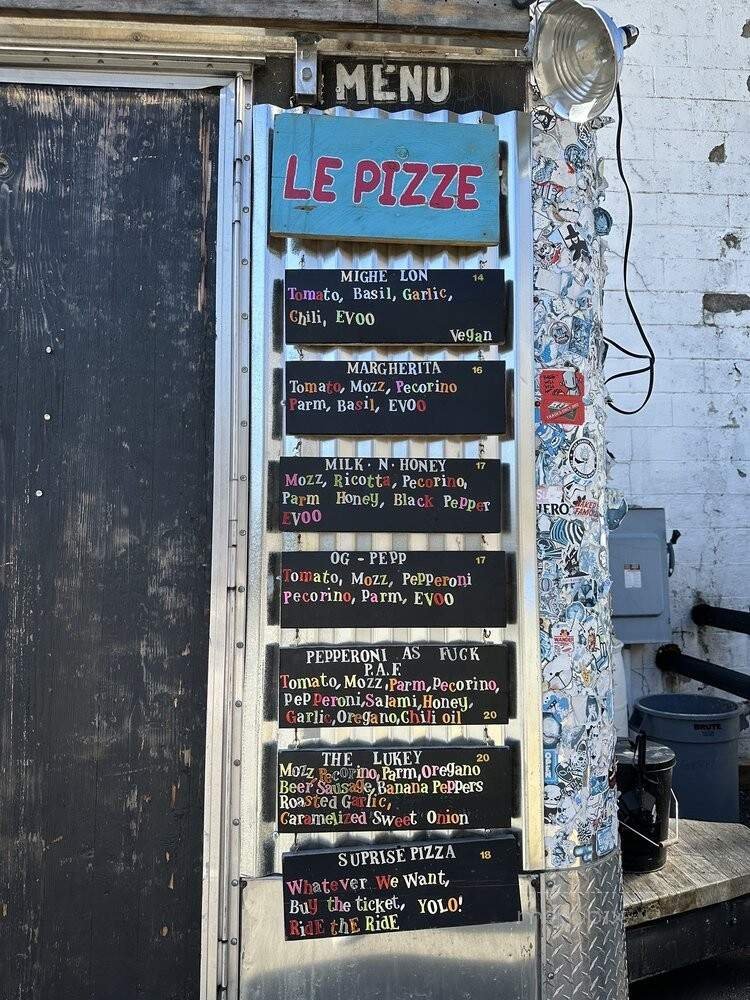 MENU
LE PIZZE
MIGHE LON 14
Tomato, Basil, Garlic,
Chili, EVOO
Vegan
MARGHERITA 16
Tomato, Mozz, Pecorino
Parm, Basil, EVOO
MILK · N · HONEY 17
Mozz, Ricotta, Pecorino,
Parm Honey, Black Pepper
EVOO
OG - PEPP 17
Tomato, Mozz, Pepperoni
Pecorino, Parm, EVOO
PEPPERONI AS FUCK
P.A.F.
Tomato, Mozz, Parm, Pecorino,
PepPeroni, Salami, Honey,
Garlic, Oregano, Chili oil 20
THE LUKEY 20
Mozz, Pecorino, Parm, Oregano
Beer Sausage, Banana Peppers
Roasted Garlic,
Caramelized Sweet Onion
SUPRISE PIZZA 18
Whatever We Want,
Buy the ticket, YOLO!
RiDE the RiDE
HERO
BRUTE